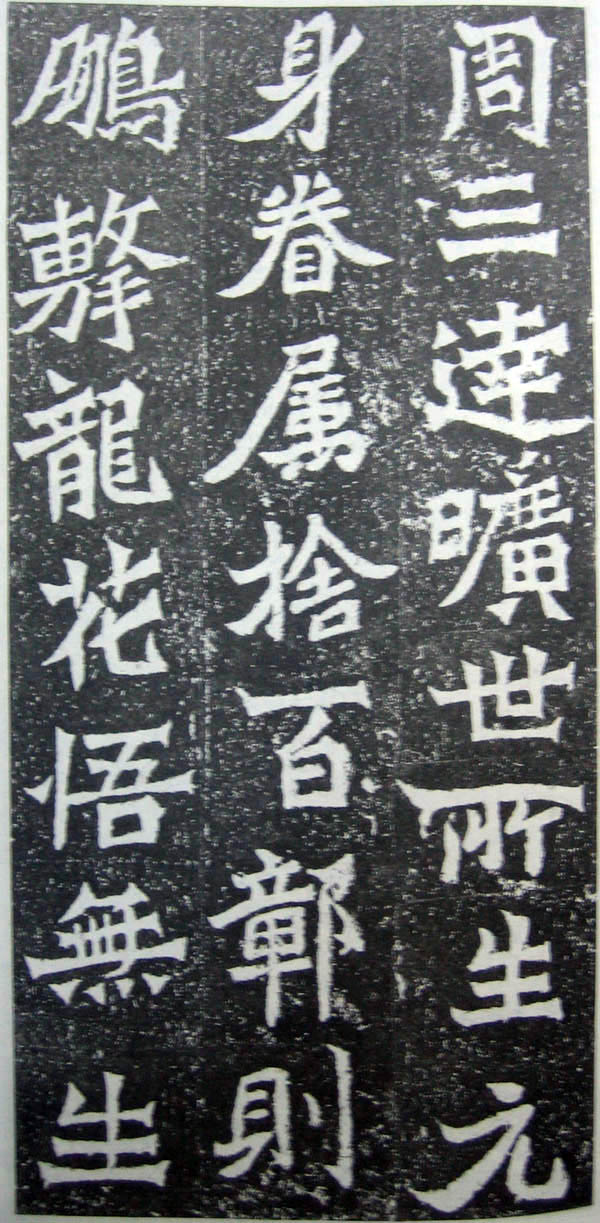 周三逵曠世所生元
身眷属捨百鄣則
鵬擊龍花悟無生